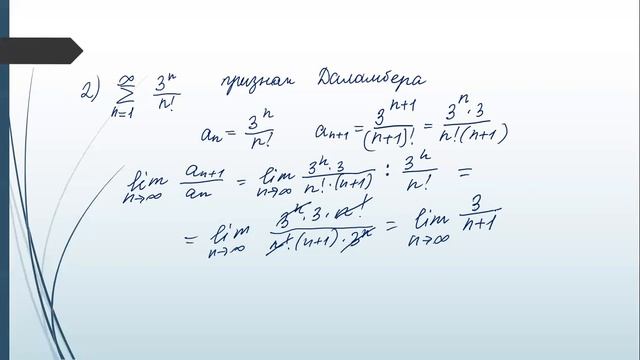 2) ∑_{n=1}^{∞} 3ⁿ/n! признак Даламбера
aₙ = 3ⁿ/n! aₙ₊₁ = 3ⁿ⁺¹/(n+1)! = 3ⁿ·3/n!(n+1)
lim_{n→∞} aₙ₊₁/aₙ = lim_{n→∞} 3ⁿ·3/n!·(n+1) : 3ⁿ/n! =
= lim_{n→∞} 3ⁿ·3·n!/n!·(n+1)·3ⁿ = lim_{n→∞} 3/n+1